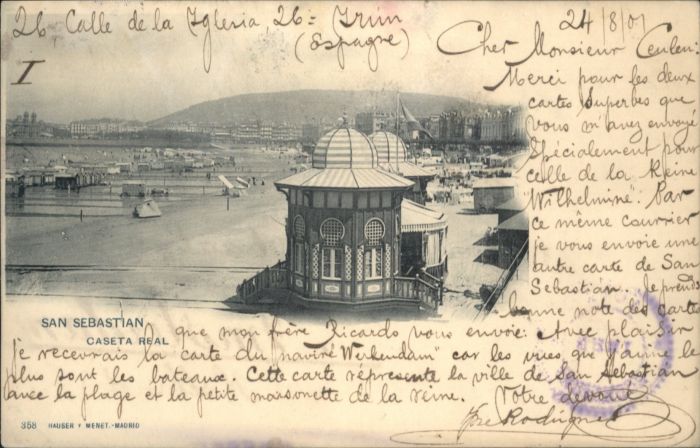 26, Calle de la Iglesia, 26= Irún
(Espagne)
24/8/01
I
Cher Monsieur Ceulen:
Merci pour les deux
cartes superbes que
vous m'avez envoyé
Spécialement pour
celle de la Reine
Wilhelmine. Par
ce même courrier
je vous envoie une
autre carte de San
Sebastian. Je prends
bonne note des cartes
que mon frère Ricardo vous envoie. Avec plaisir
je recevrais la carte du "navire Werkendam" car les vues que j'aime le
plus sont les bateaux. Cette carte réprésente la ville de San Sebastian
avec la plage et la petite maisonette de la reine. Votre dévoué
José Rodriguez
SAN SEBASTIAN
CASETA REAL
358 HAUSER Y MENET.-MADRID